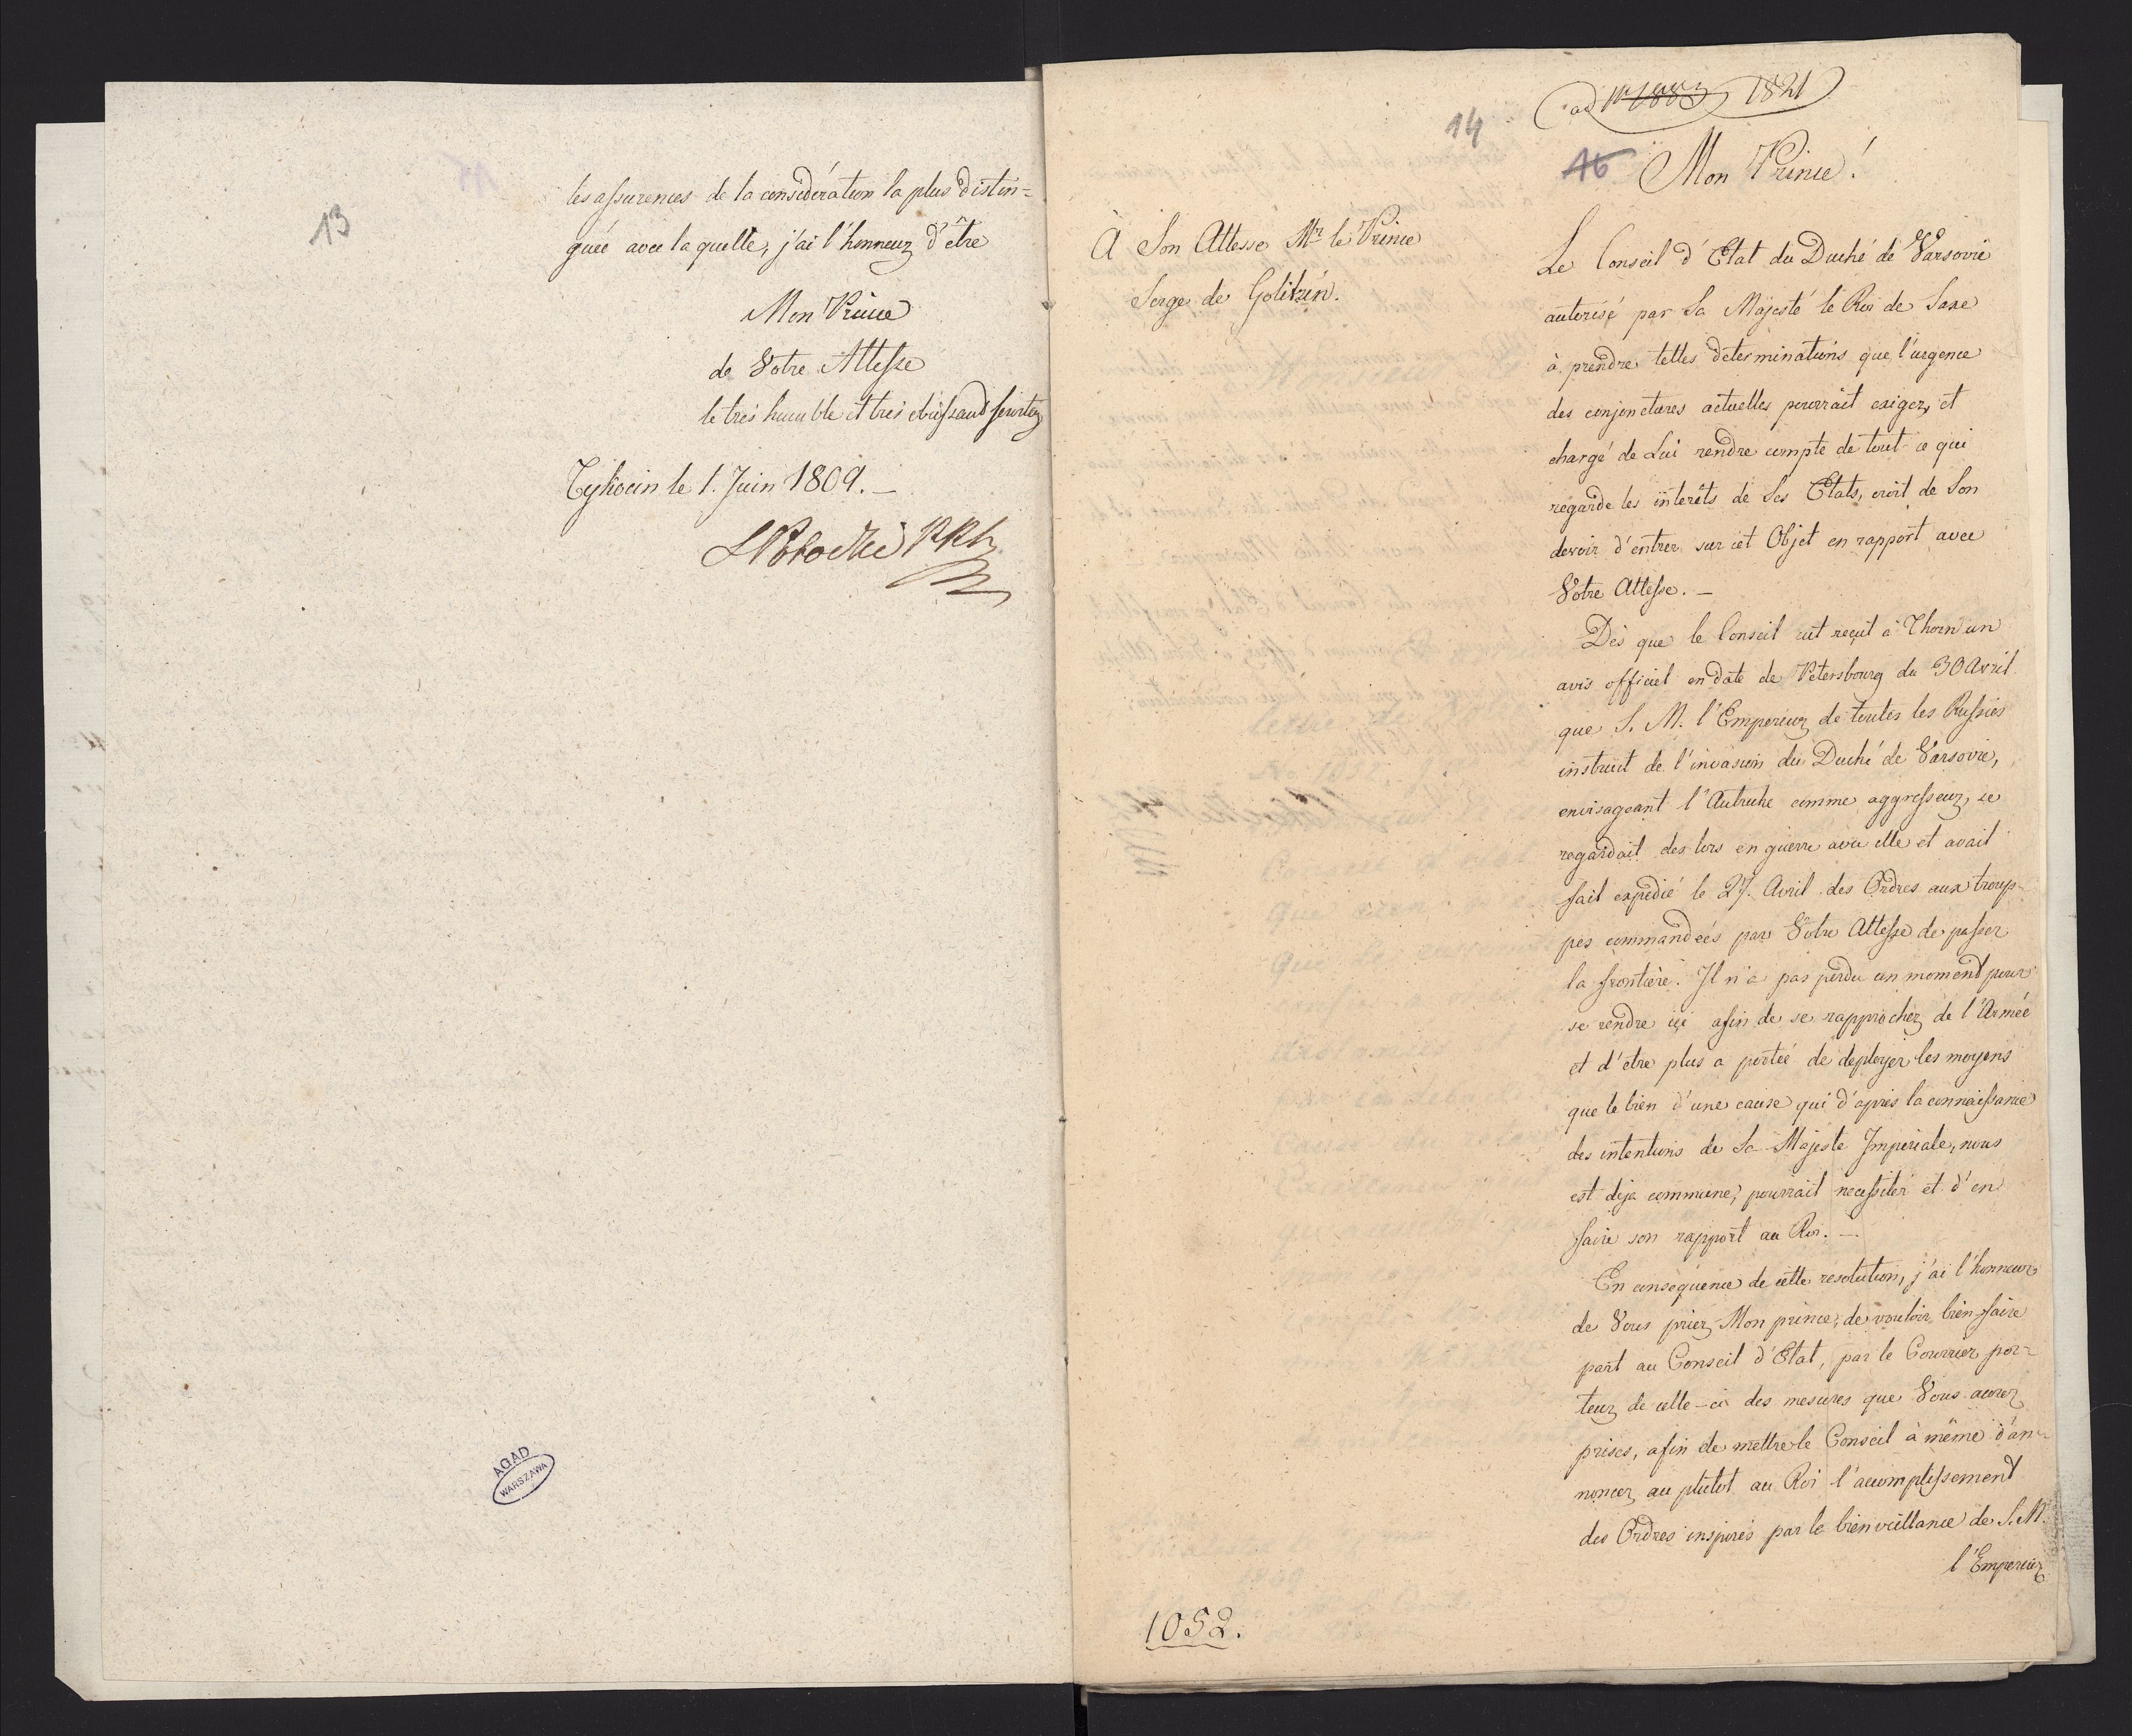 13
les assurences de la considération la plus distin=
guée avec la quelle, j'ai l'honneur d'être
Mon Prince
de Votre Altesse
le très humble et très obéissant serviteur
Tykocin le 1. Juin 1809. —
SPotocki
AGAD
WARSZAWA
14
ad N 1883 1821
16
Mon Prince!
À Son Altesse Mr le Prince
Serge de Golitzin.
Le Conseil d'Etat du Duché de Varsovie
autorisé par Sa Majesté le Roi de Saxe
à prendre telles determinations que l'urgence
des conjonctures actuelles pourrait exiger, et
chargé de Lui rendre compte de tout ce qui
regarde les interêts de Ses Etats, croit de Son
devoir d'entrer sur cet Objet en rapport avec
Votre Altesse. —
Dès que le Conseil eut reçut à Thorn un
avis officiel en date de Petersbourg du 30 Avril
que S. M. l'Empereur de toutes les Russies
instruit de l'invasion du Duché de Varsovie,
envisageant l'Autriche comme aggresseur, se
regardait des lors en guerre avec elle et avait
fait expédié le 27. Avril des Ordres aux troup-
pes commandées par Votre Altesse de passer
la frontière. Il n'a pas perdu un moment pour
se rendre ici afin de se rapprocher de l'Armée
et d'etre plus a portée de deployer les moyens
que le bien d'une cause qui d'après la connaissance
des intentions de Sa Majeste Imperiale, nous
est deja commune, pourrait necessiter et d'en
faire son rapport au Roi. —
En conséquence de cette resolution, j'ai l'honneur
de Vous prier, Mon prince, de vouloir bien faire
part au Conseil d'Etat, par le Courrier por=
teur de celle-ci des mesures que Vous aurez
prises, afin de mettre le Conseil à même d'an-
noncer au plutot au Roi l'accomplissement
des Ordres inspirés par le bienveillance de S. M.
l'Empereur
1052.